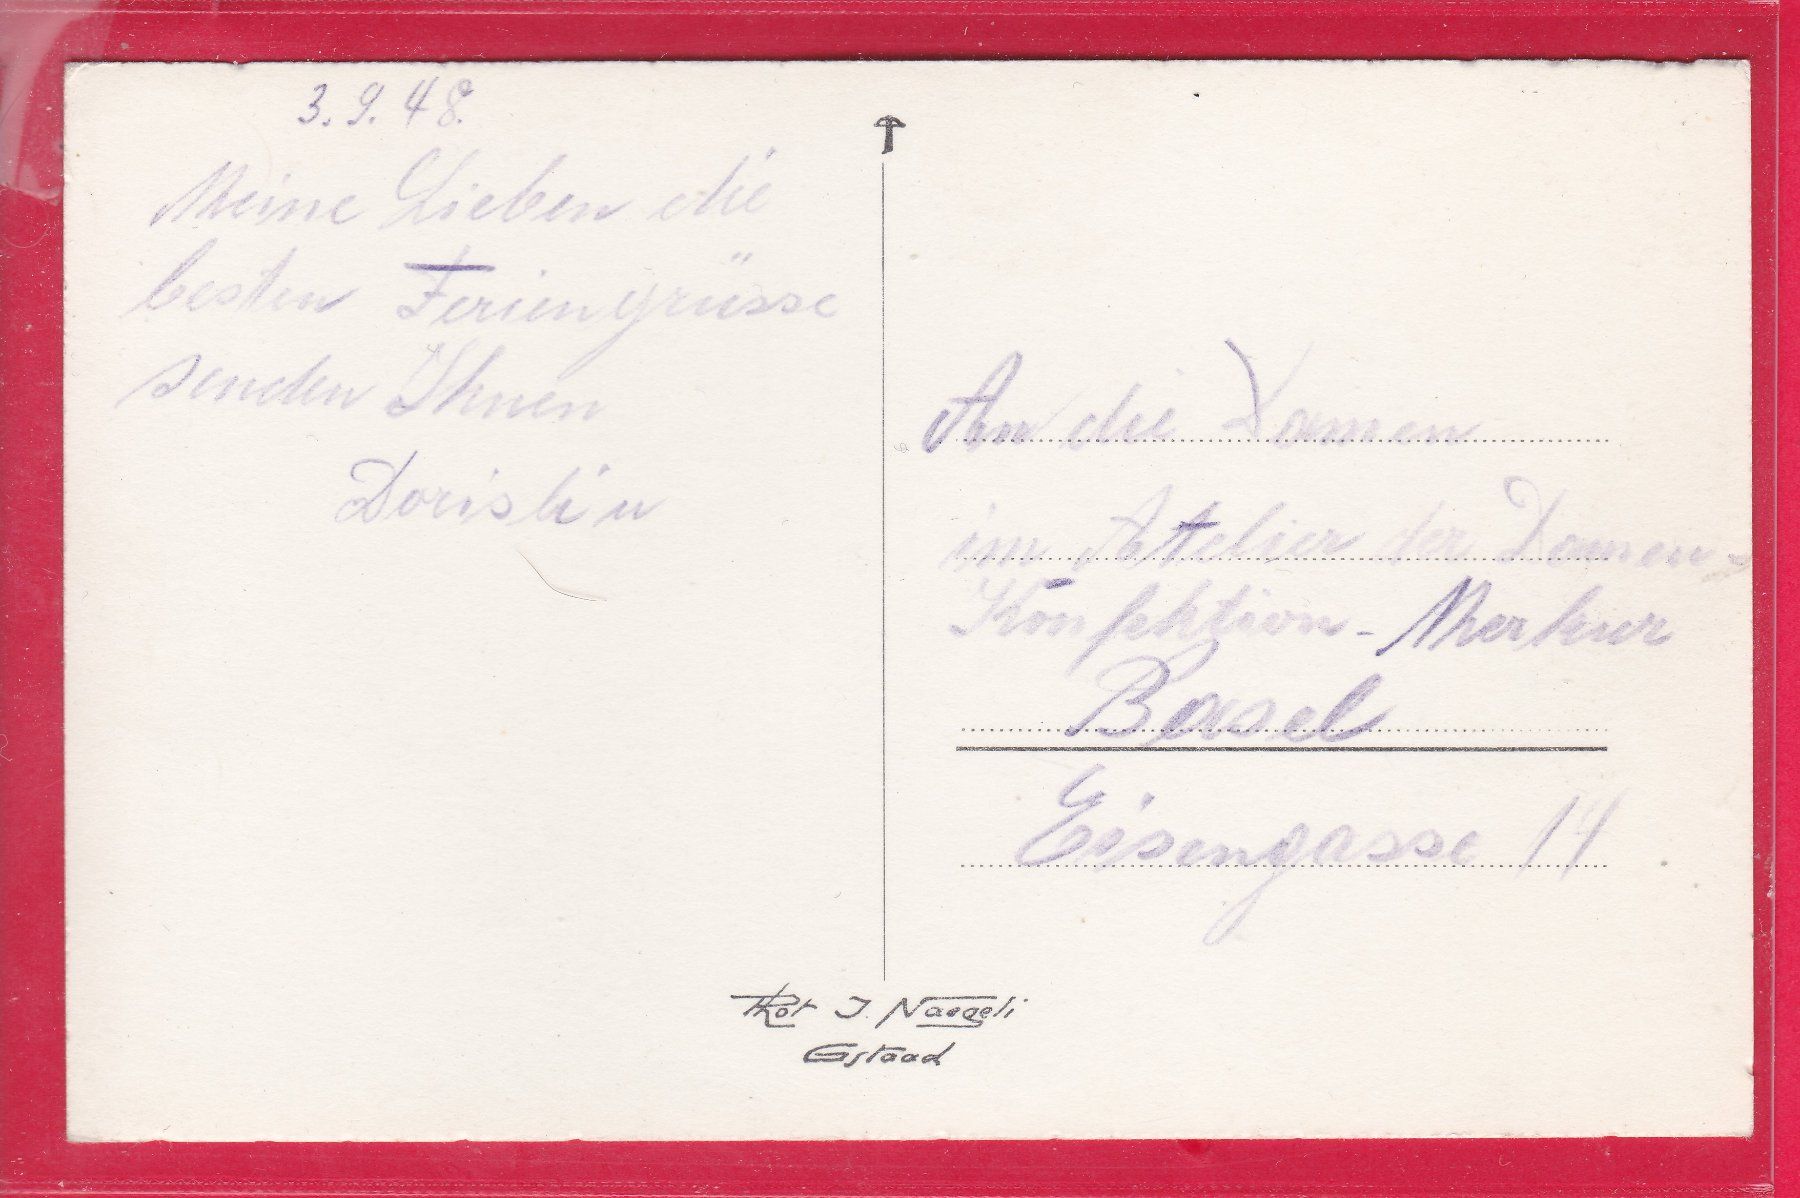 3.9.48.
Meine Lieben die
besten Feriengrüsse
senden Ihnen
An die Damen
im Atelier der Damen-
Konfektion - Merkur
Basel
Eisengasse 14
Phot J. Naegeli
Gstaad